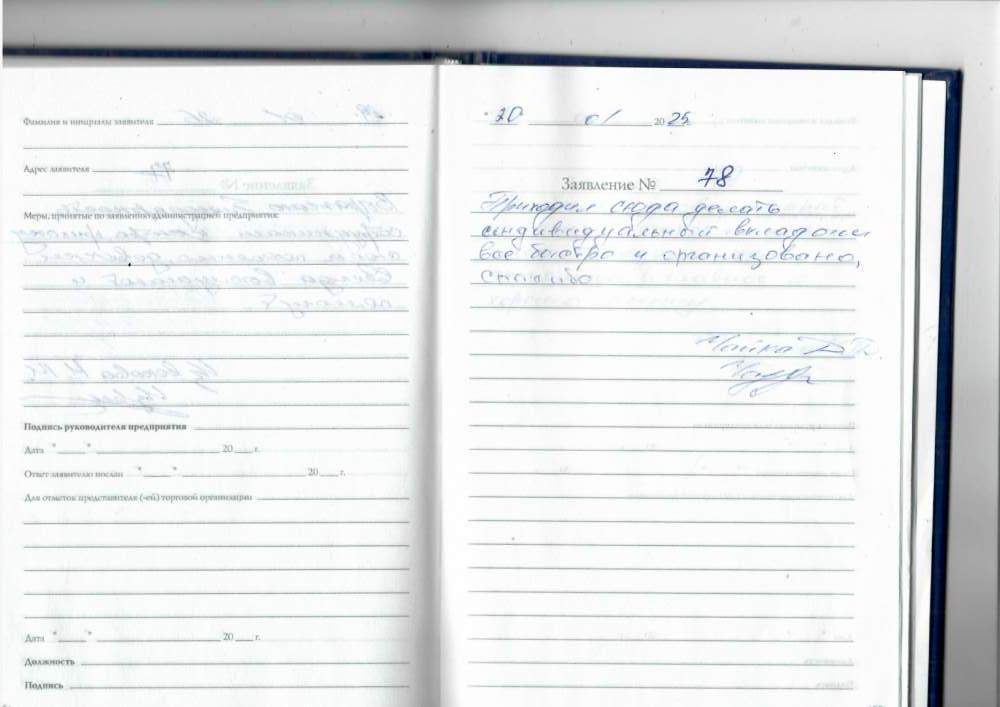 Фамилия и инициалы заявителя
Адрес заявителя
Меры, принятые по заявлению администрацией предприятия:
Подпись руководителя предприятия
Дата " " 20 г.
Ответ заявителю послан " " 20 г.
Для отметок представителя (-ей) торговой организации
Дата " " 20 г.
Должность
Подпись
20 01 2025
Заявление № 78
Приходил сюда делать
индивидуальный вклад они
всё быстро и организовано,
спасибо
Чайка